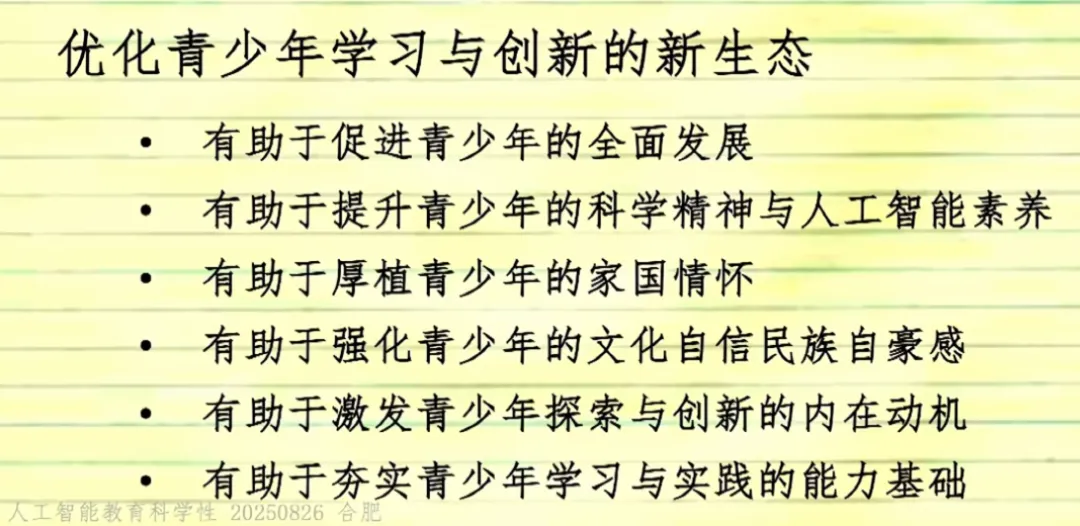 优化青少年学习与创新的新生态
• 有助于促进青少年的全面发展
• 有助于提升青少年的科学精神与人工智能素养
• 有助于厚植青少年的家国情怀
• 有助于强化青少年的文化自信民族自豪感
• 有助于激发青少年探索与创新的内在动机
• 有助于夯实青少年学习与实践的能力基础
人工智能教育科学性 20250826 合肥